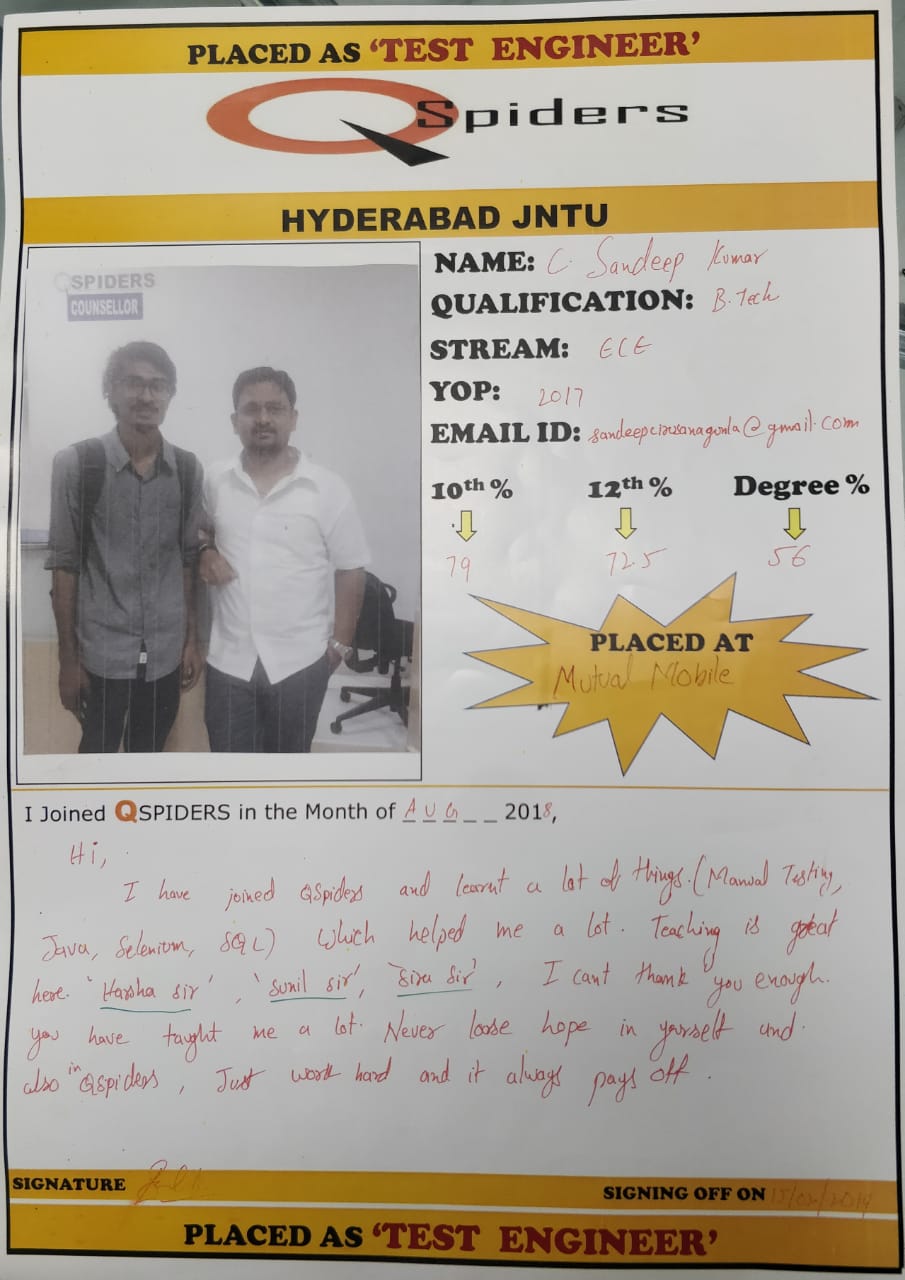 PLACED AS ‘TEST ENGINEER’
QSpiders
HYDERABAD JNTU
QSPIDERS
COUNSELLOR
NAME: C. Sandeep Kumar
QUALIFICATION: B.Tech
STREAM: ECE
YOP: 2017
EMAIL ID: @gmail.com
10th % 12th % Degree %
79 72.5 56
PLACED AT
Mutual Mobile
I Joined QSPIDERS in the Month of AUG__ 2018,
Hi,
I have joined QSpiders and learnt a lot of things.(Manual Testing,
Java, Selenium, SQL) Which helped me a lot. Teaching is great
here. 'Harsha sir', 'Sunil sir', 'Siva Sir', I cant thank you enough.
you have taught me a lot. Never loose hope in yourself and
also in QSpiders, Just work hard and it always pays off.
SIGNATURE
SIGNING OFF ON
PLACED AS ‘TEST ENGINEER’